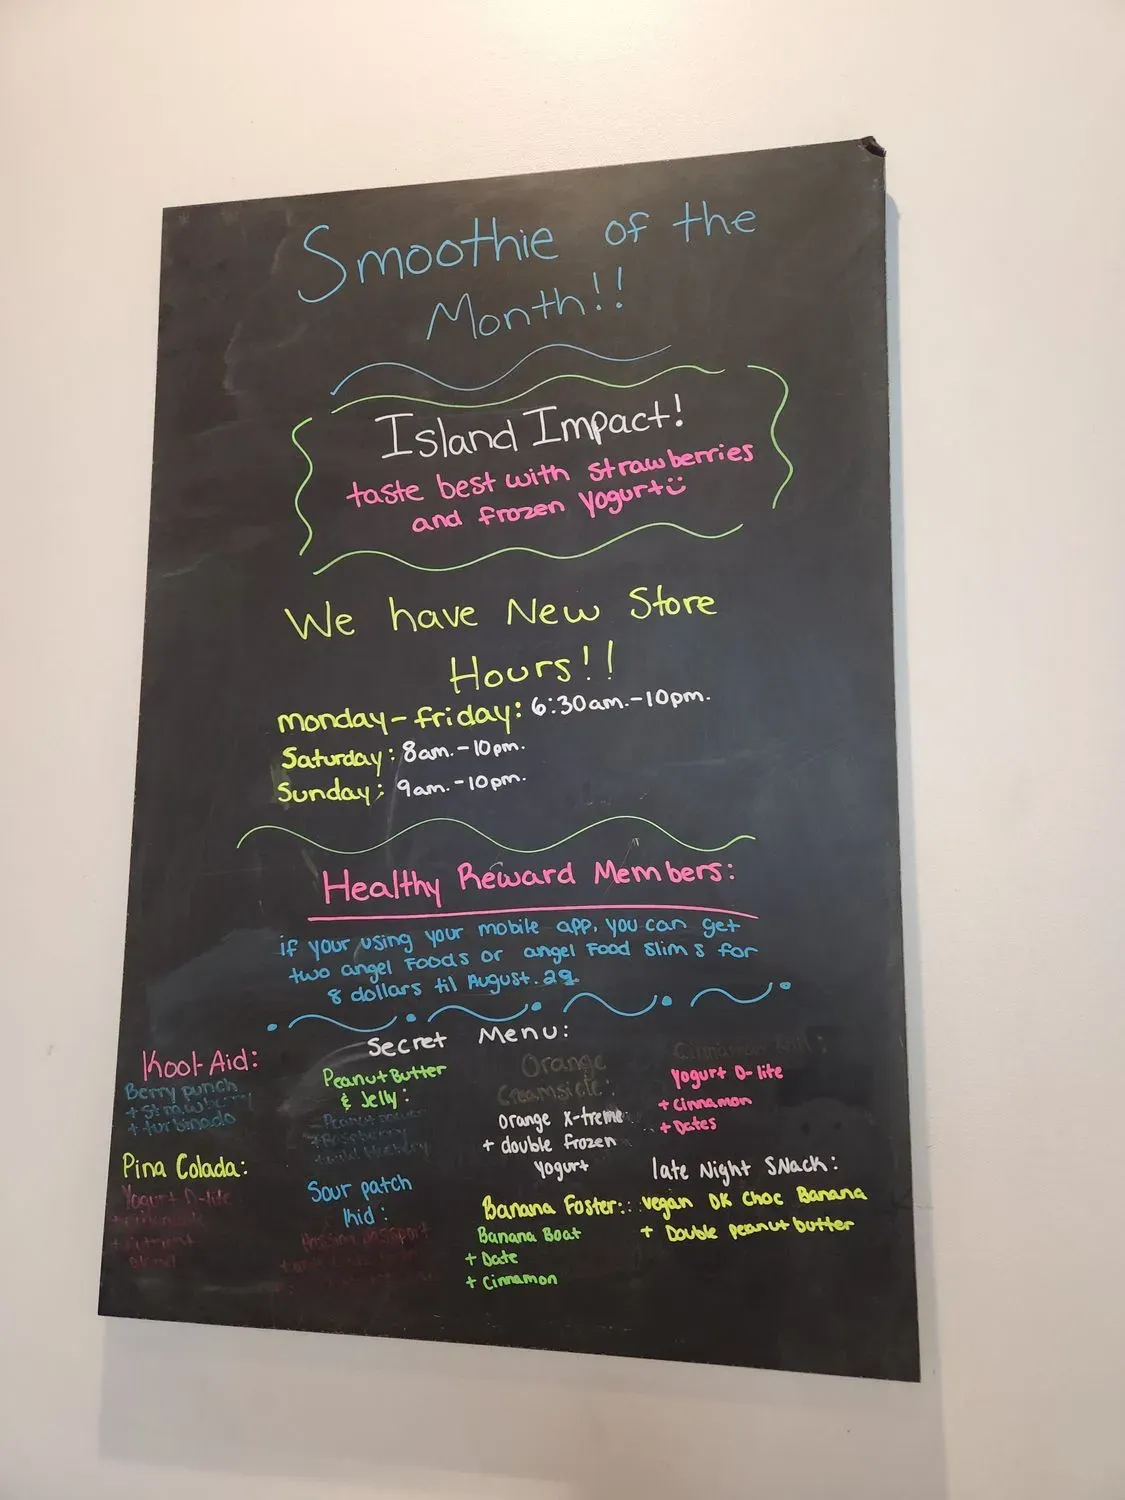 Smoothie of the
Month!!
Island Impact!
taste best with strawberries
and frozen Yogurt
We have New Store
Hours!!
monday-friday: 6:30am.-10pm.
Saturday: 8am.-10pm.
Sunday: 9am.-10pm.
Healthy Reward Members:
if your using your mobile app, you can get
two angel Foods or angel Food Slim s for
8 dollars til August. 29
Secret Menu:
Kool-Aid:
Berry punch
+ Strawberry
+ turbinado
Pina Colada:
Yogurt D-lite
Peanut Butter
& Jelly:
Sour patch
Kid:
Passion Passport
Orange
Creamsicle:
Orange X-treme
+ double frozen
Yogurt
Banana Foster:
Banana Boat
+ Date
+ Cinnamon
Cinnamon Roll:
Yogurt D-lite
+ Cinnamon
+ Dates
late Night Snack:
vegan DK Choc Banana
+ Double peanut butter